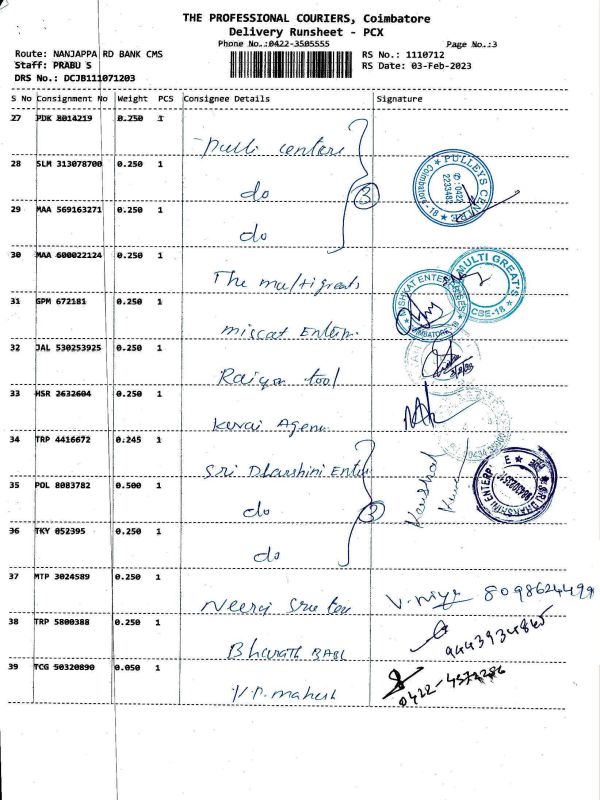 THE PROFESSIONAL COURIERS, Coimbatore
Delivery Runsheet - PCX
Phone No.:0422-3505555
Page No.:3
Route: NANJAPPA RD BANK CMS
RS No.: 1110712
Staff: PRABU S
RS Date: 03-Feb-2023
DRS No.: DCJB111071203
S No Consignment No Weight PCS Consignee Details Signature
27 PDK 8014219 0.250 1
28 SLM 313078700 0.250 1
do
29 MAA 569163271 0.250 1
do
3
PULLEYS CENTRE
Coimbatore - 18
0422
30 MAA 600022124 0.250 1
The multigreats
MULTI GREAT'S
CBE-18
31 GPM 672181 0.250 1
miscat Enter.
32 JAL 530253925 0.250 1
tool
33 HSR 2632604 0.250 1
34 TRP 4416672 0.245 1
Sri Dharshini Enter
35 POL 8083782 0.500 1
do
36 TKY 052395 0.250 1
do
3
Kaushal
SRI DHARSHINI ENTERPRISE
37 MTP 3024589 0.250 1
8098624499
38 TRP 5800388 0.250 1
Bharath
39 TCG 50320890 0.050 1
V.P. mahesh